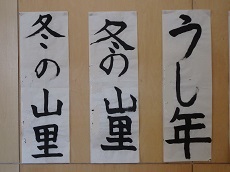 うし年
冬の山里
冬の山里